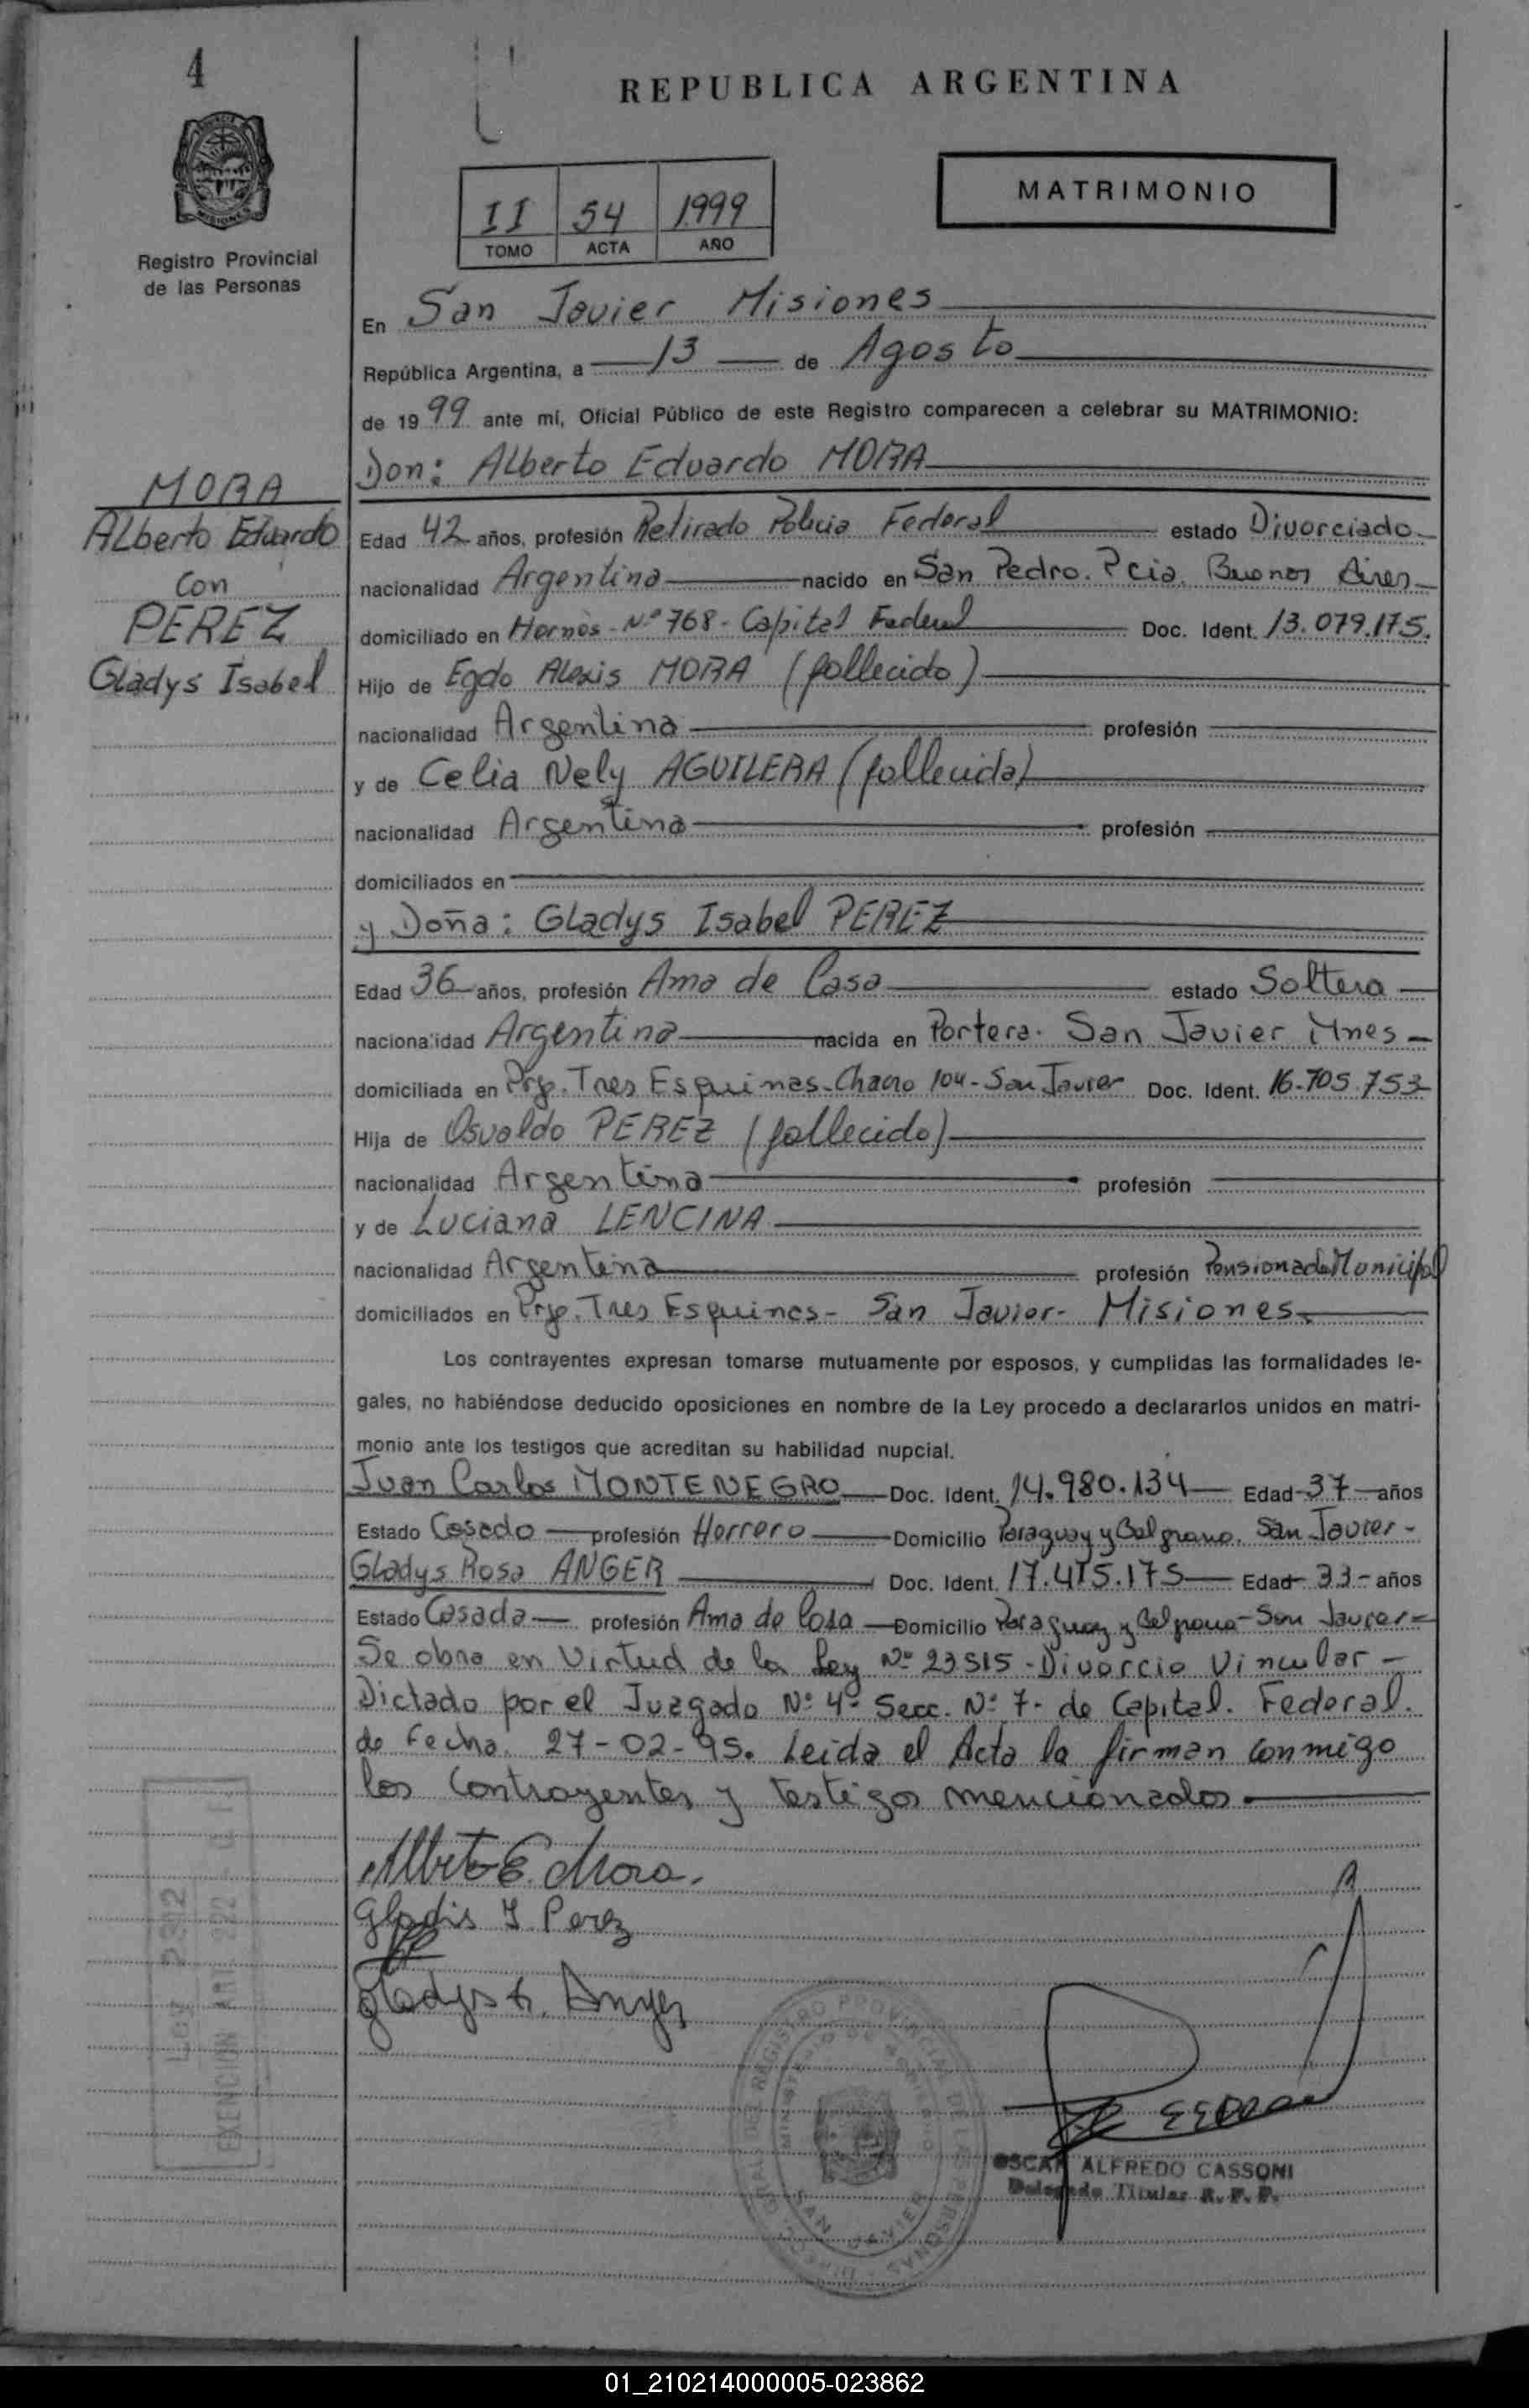 4
REPUBLICA ARGENTINA
MATRIMONIO
II 54 1999
TOMO ACTA AÑO
Registro Provincial
de las Personas
En San Javier Misiones
República Argentina, a 13 de Agosto
de 1999 ante mí, Oficial Público de este Registro comparecen a celebrar su MATRIMONIO:
Don: Alberto Eduardo MORA
MORA
Alberto Eduardo
Con
PEREZ
Gladys Isabel
Edad 42 años, profesión Retirado Policia Federal estado Divorciado
nacionalidad Argentina nacido en San Pedro. Pcia. Buenos Aires
domiciliado en Hornos - Nº 768 - Capital Federal Doc. Ident. 13.079.175.
Hijo de Egdo Alexis MORA (fallecido)
nacionalidad Argentina profesión
y de Celia Nely AGUILERA (fallecida)
nacionalidad Argentina profesión
domiciliados en
y Doña: Gladys Isabel PEREZ
Edad 36 años, profesión Ama de Casa estado Soltera
nacionalidad Argentina nacida en Portera. San Javier Mnes
domiciliada en Prje. Tres Esquinas - Chacra 104 - San Javier Doc. Ident. 16.705.753
Hija de Osvaldo PEREZ (fallecido)
nacionalidad Argentina profesión
y de Luciana LENCINA
nacionalidad Argentina profesión Pensionada Municipal
domiciliados en Prje. Tres Esquinas - San Javier - Misiones
Los contrayentes expresan tomarse mutuamente por esposos, y cumplidas las formalidades le-
gales, no habiéndose deducido oposiciones en nombre de la Ley procedo a declararlos unidos en matri-
monio ante los testigos que acreditan su habilidad nupcial.
Juan Carlos MONTENEGRO Doc. Ident. 14.980.134 Edad 37 años
Estado Casado profesión Herrero Domicilio Paraguay y Belgrano. San Javier -
Gladys Rosa ANGER Doc. Ident. 17.415.175 Edad 33 - años
Estado Casada profesión Ama de Casa Domicilio Paraguay y Belgrano - San Javier -
Se obra en Virtud de la Ley Nº 23515 - Divorcio Vincular -
Dictado por el Juzgado Nº 4º Secc. Nº 7 - de Capital. Federal.
de Fecha. 27-02-95. Leida el Acta la firman conmigo
los Contrayentes y testigos mencionados.
Alberto E. Mora.
Gladis I Perez
Gladys R. Anger
Ley 2392
EXENCION ART 222
REGISTRO PROVINCIAL DE LAS PERSONAS
SAN JAVIER
OSCAR ALFREDO CASSONI
Delegado Titular R. P. P.
01_210214000005-023862